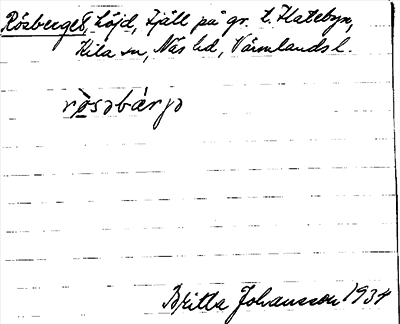 Rösberget, höjd, fjäll på gr. t. Flatebyn,
Kila sn, Näs hd, Värmlands l.
rø̀søbárjø
Britta Johansson 1934